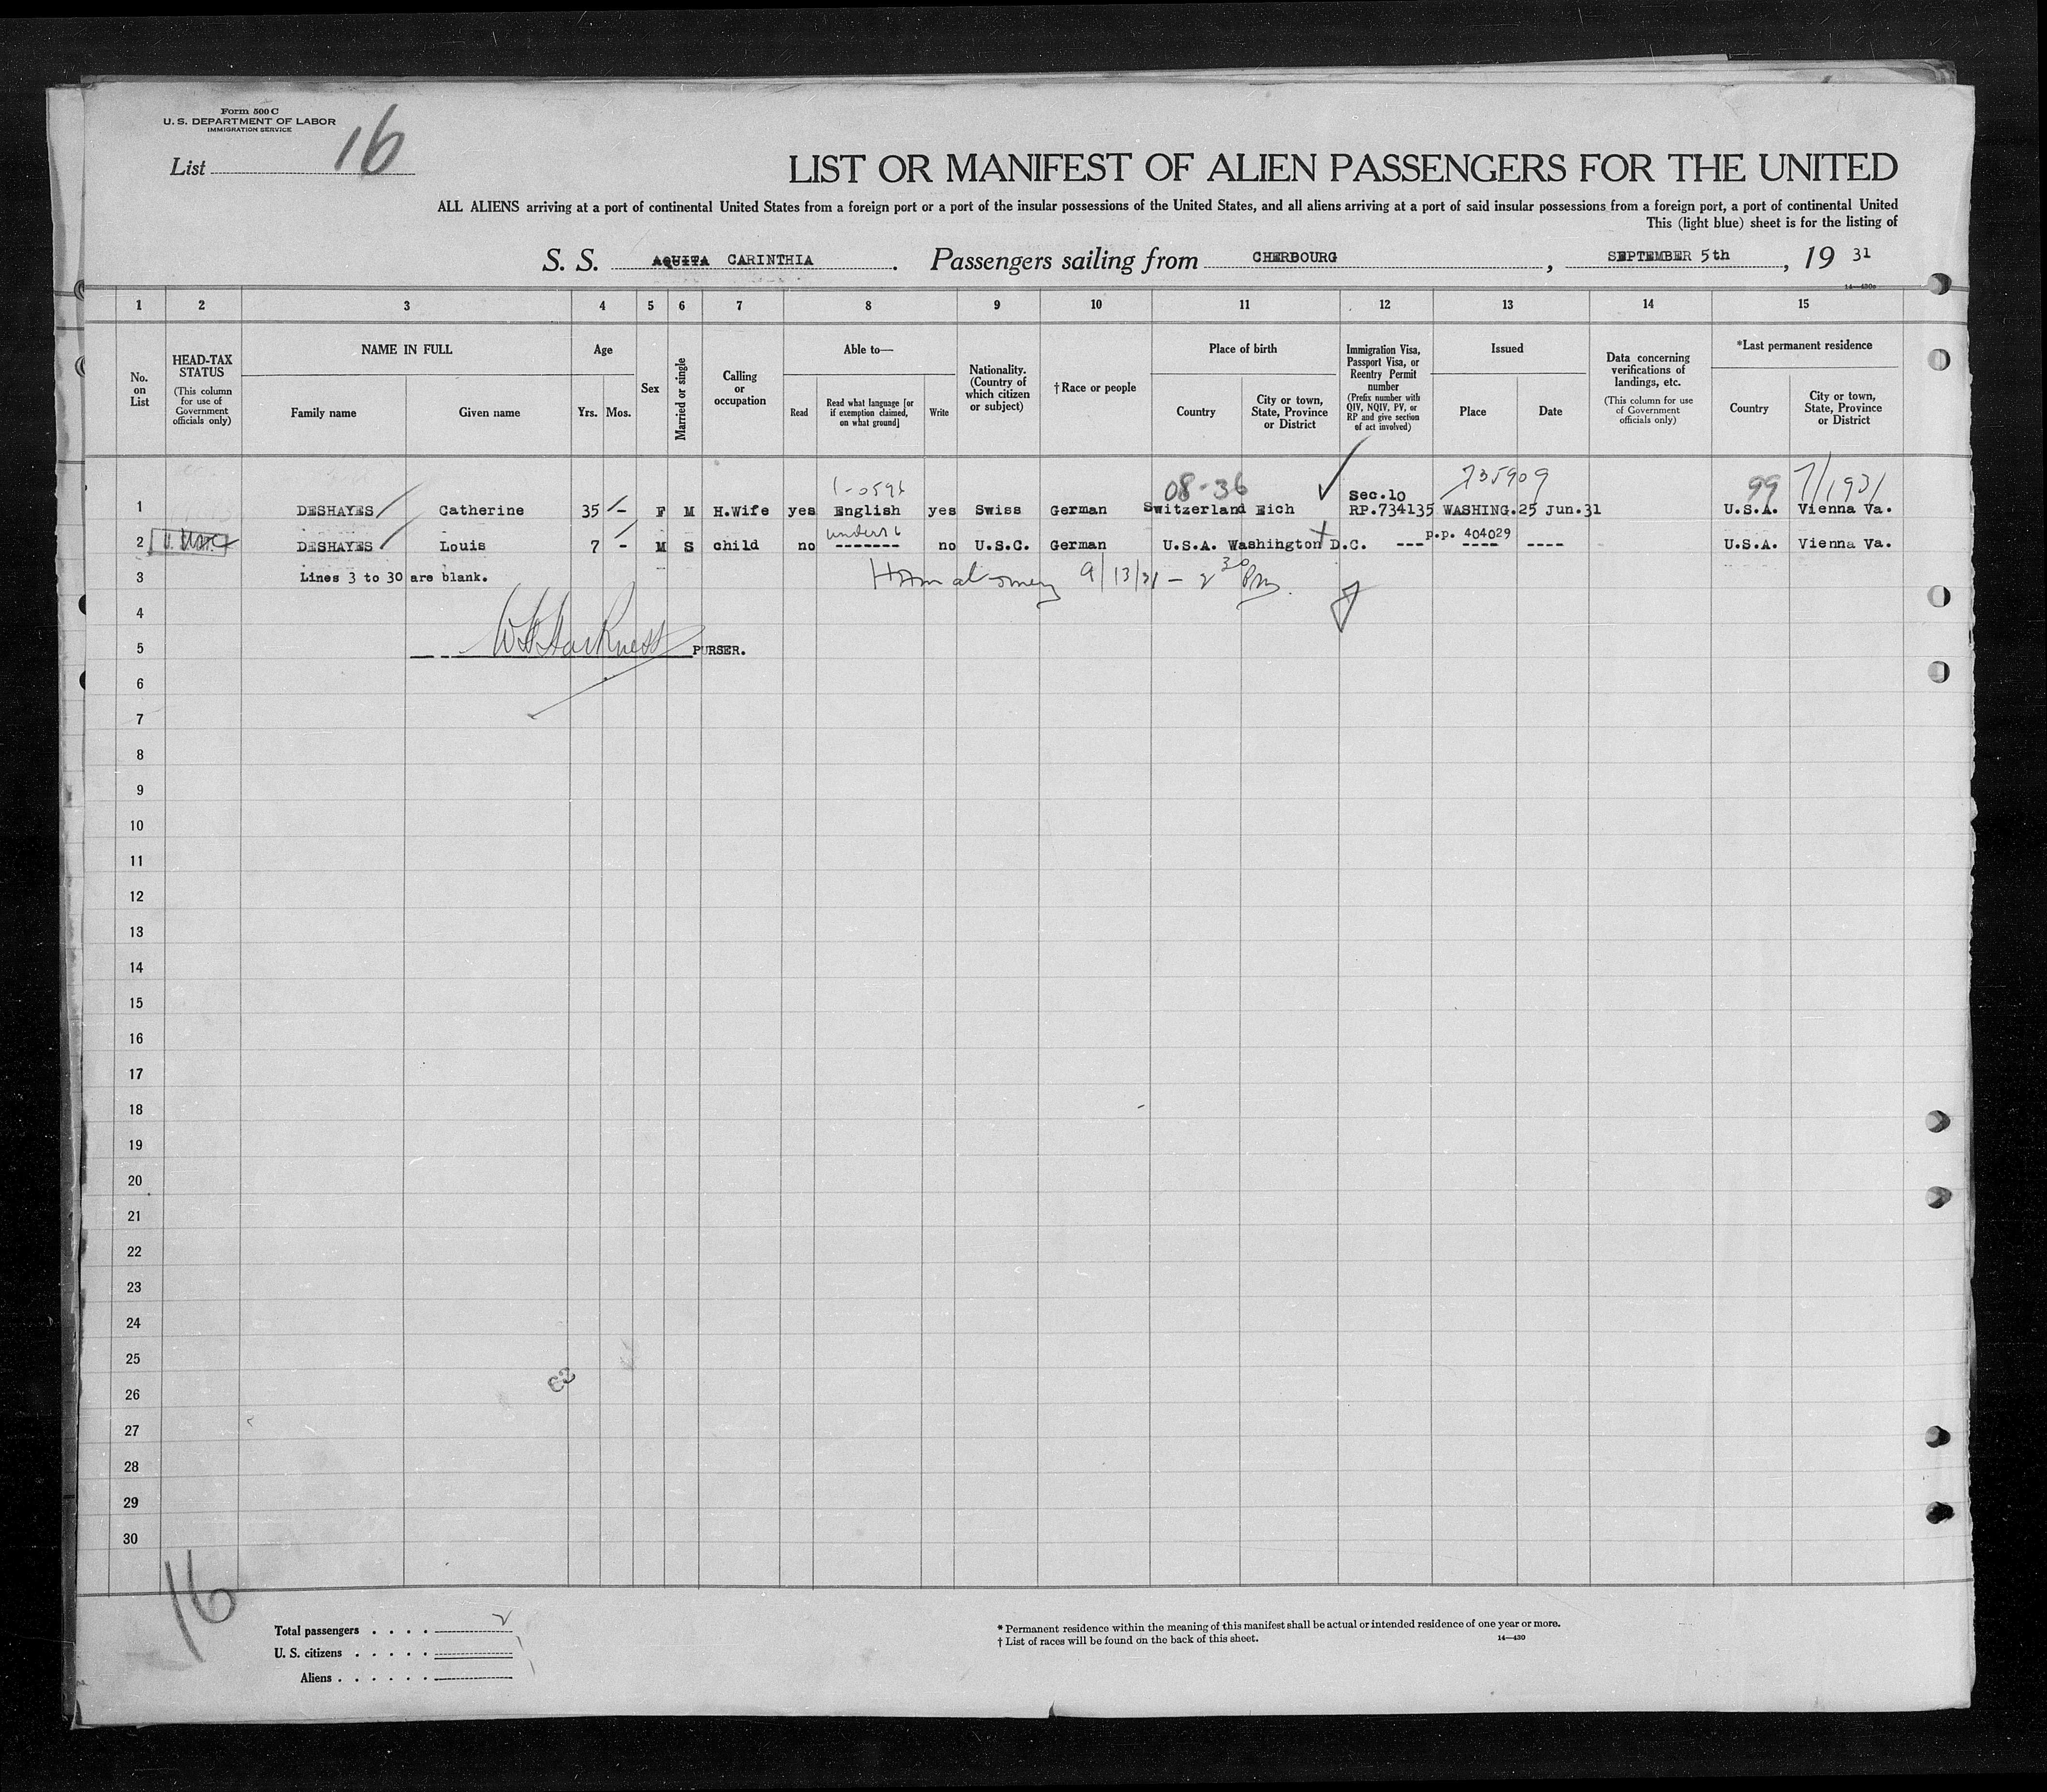 Form 500 C
U. S. DEPARTMENT OF LABOR
IMMIGRATION SERVICE
List 16
LIST OR MANIFEST OF ALIEN PASSENGERS FOR THE UNITED
ALL ALIENS arriving at a port of continental United States from a foreign port or a port of the insular possessions of the United States, and all aliens arriving at a port of said insular possessions from a foreign port, a port of continental United
This (light blue) sheet is for the listing of
S. S. AQUITA CARINTHIA . Passengers sailing from CHERBOURG , SEPTEMBER 5th , 19 31
14—430c
1 2 3 4 5 6 7 8 9 10 11 12 13 14 15
No. on List
HEAD-TAX STATUS (This column for use of Government officials only)
NAME IN FULL
Family name
Given name
Age
Yrs. Mos.
Sex
Married or single
Calling or occupation
Able to—
Read
Read what language [or if exemption claimed, on what ground]
Write
Nationality. (Country of which citizen or subject)
† Race or people
Place of birth
Country
City or town, State, Province or District
Immigration Visa, Passport Visa, or Reentry Permit number (Prefix number with QIV, NQIV, PV, or RP and give section of act involved)
Issued
Place
Date
Data concerning verifications of landings, etc. (This column for use of Government officials only)
*Last permanent residence
Country
City or town, State, Province or District
08-36 735909 99 7/1931
Sec.10
1 DESHAYES Catherine 35 - F M H.Wife yes English yes Swiss German Switzerland Eich RP.734135 WASHING. 25 Jun.31 U.S.A. Vienna Va.
p.p. 404029
2 DESHAYES Louis 7 - M S child no ------- no U.S.C. German U.S.A. Washington D.C. --- ---- ---- U.S.A. Vienna Va.
3 Lines 3 to 30 are blank. 9/13/31 - 2 30 Pm.
4
5 W Harkness PURSER.
6
7
8
9
10
11
12
13
14
15
16
17
18
19
20
21
22
23
24
25
26
27
28
29
30
16
Total passengers . . . . 2
U. S. citizens . . . . .
Aliens . . . . . .
* Permanent residence within the meaning of this manifest shall be actual or intended residence of one year or more.
† List of races will be found on the back of this sheet. 14—430